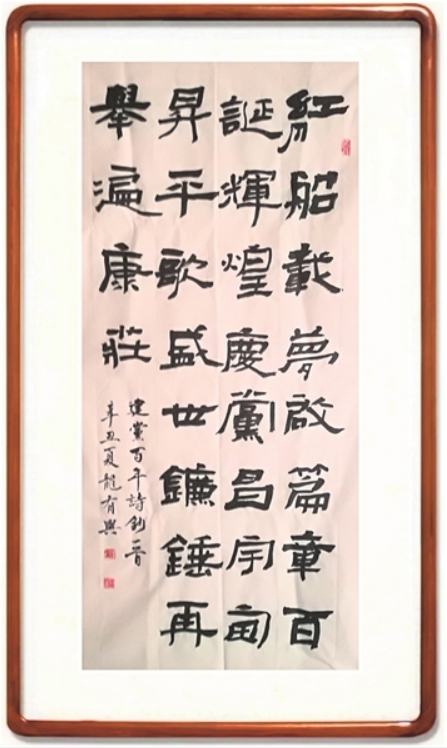 紅船載夢啟篇章百
誕輝煌慶黨昌宇甸
昇平歌盛世鐮錘再
舉遍康莊
建黨百年詩鈔一首
辛丑夏龍有興